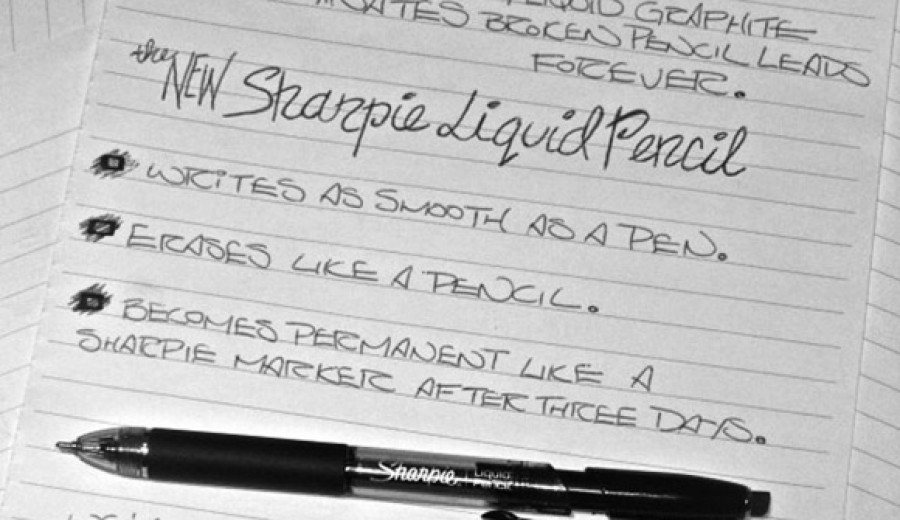 LIQUID GRAPHITE
BROKEN PENCIL LEADS
FOREVER.
the NEW Sharpie Liquid Pencil
WRITES AS SMOOTH AS A PEN.
ERASES LIKE A PENCIL.
BECOMES PERMANENT LIKE A
SHARPIE MARKER AFTER THREE DAYS.
Sharpie Liquid Pencil